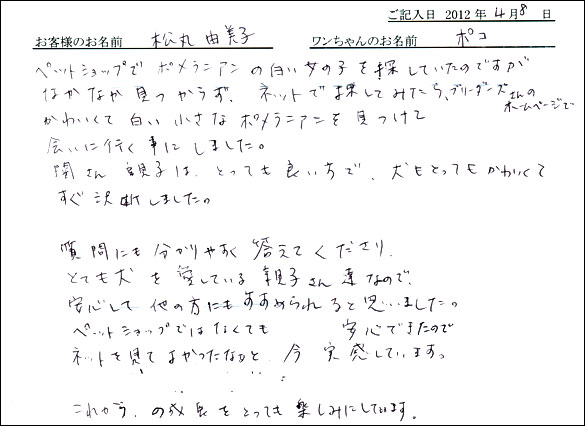 ご記入日 2012 年 4 月 8 日
お客様のお名前 松丸 由美子 ワンちゃんのお名前 ポコ
ペットショップで ポメラニアン の白い女の子を探していたのですが
なかなか見つからず、ネットで探してみたら、ブリーダーズさんのホームページで
かわいくて白い小さなポメラニアンを見つけて
会いに行く事にしました。
関さん親子は、とっても良い方で、犬もとってもかわいくて
すぐ決断しました。
質問にも分かりやすく答えてくださり、
とても犬を愛している親子さん達なので、
安心して他の方にもすすめられると思いました。
ペットショップではなくても 安心できたので
ネットを見てよかったなぁと、今 実感しています。
これから、の成長をとっても楽しみにしています。